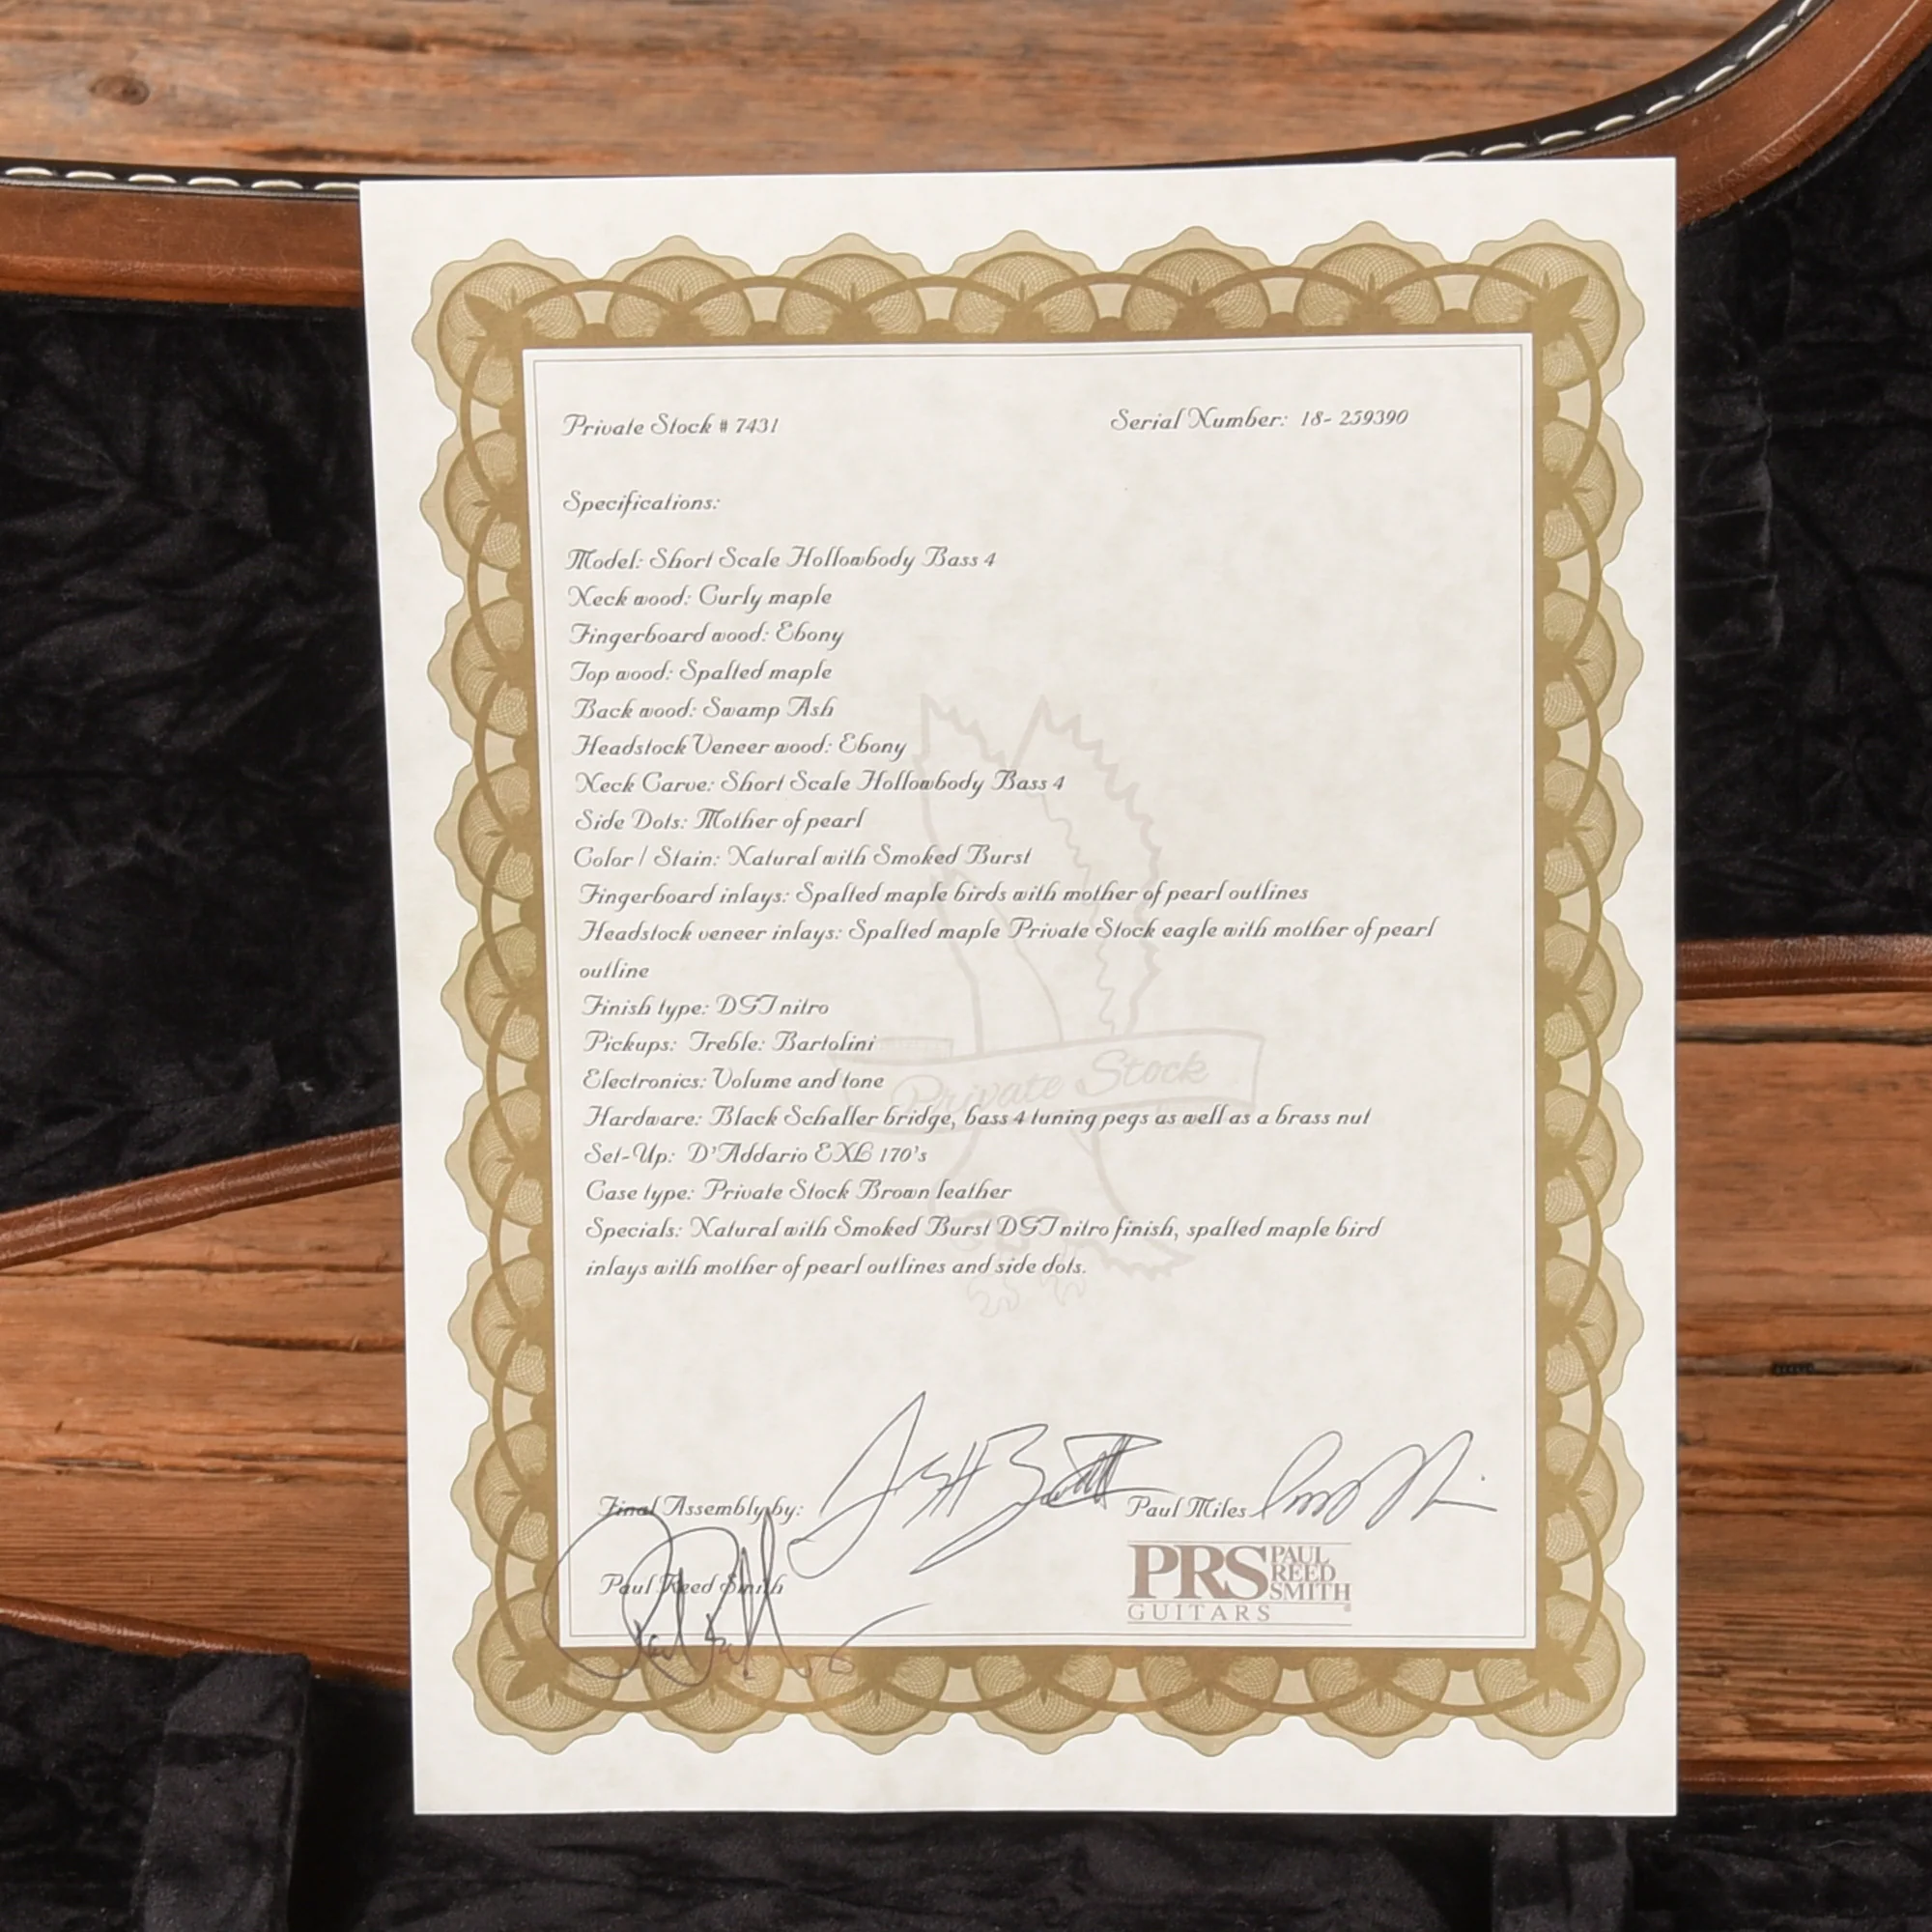 Private Stock # 7431 Serial Number: 18- 259390
Specifications:
Model: Short Scale Hollowbody Bass 4
Neck wood: Curly maple
Fingerboard wood: Ebony
Top wood: Spalted maple
Back wood: Swamp Ash
Headstock Veneer wood: Ebony
Neck Carve: Short Scale Hollowbody Bass 4
Side Dots: Mother of pearl
Color / Stain: Natural with Smoked Burst
Fingerboard inlays: Spalted maple birds with mother of pearl outlines
Headstock veneer inlays: Spalted maple Private Stock eagle with mother of pearl
outline
Finish type: DGT nitro
Pickups: Treble: Bartolini
Electronics: Volume and tone
Private Stock
Hardware: Black Schaller bridge, bass 4 tuning pegs as well as a brass nut
Set-Up: D'Addario EXL 170's
Case type: Private Stock Brown leather
Specials: Natural with Smoked Burst DGT nitro finish, spalted maple bird
inlays with mother of pearl outlines and side dots.
Final Assembly by: Paul Miles
Paul Reed Smith
PRS PAUL REED SMITH
GUITARS